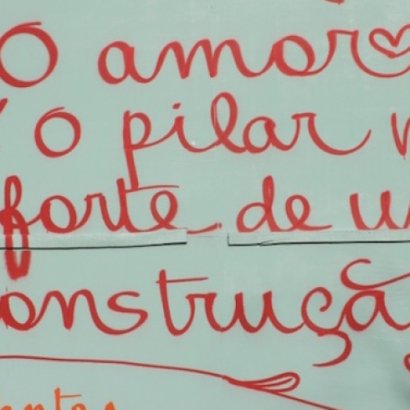 O amor
é o pilar
forte de
construçã